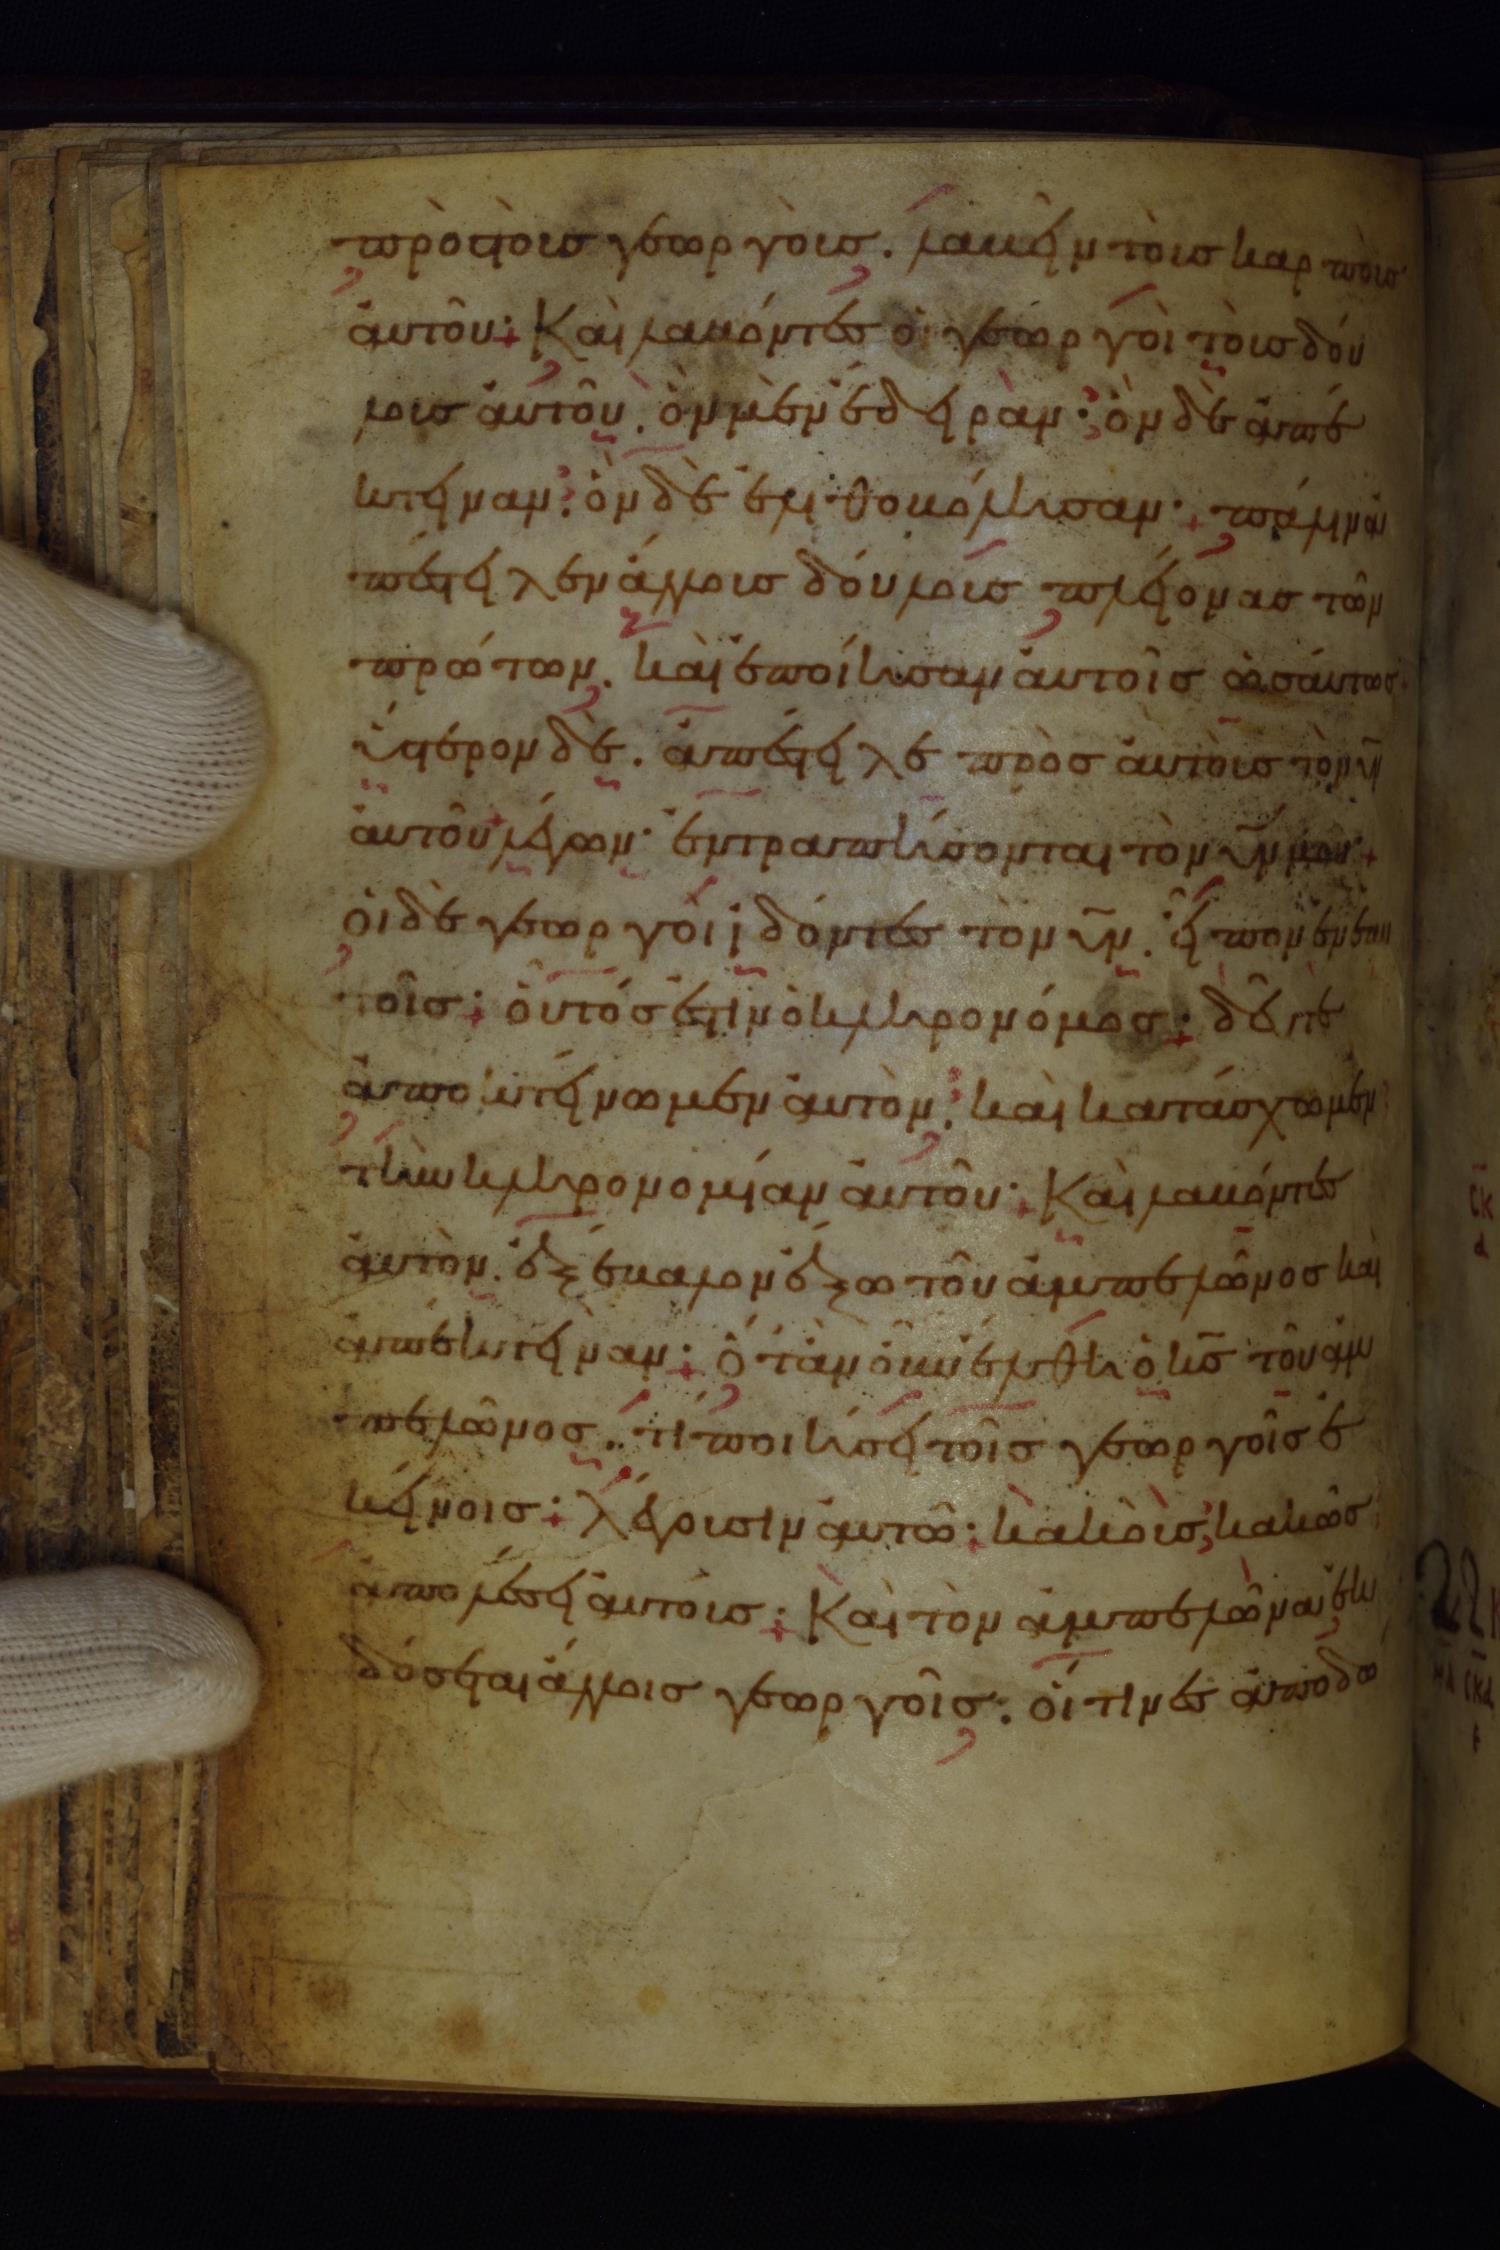 πρὸς τοὺς γεωργοὺς. λαβεῖν τοὺς καρποὺς
ἀυτοῦ· Και λαβόντες οἱ γεωργοὶ τοὺς δού
λους ἀυτοῦ. ὃν μὲν ἔδειραν· ὃν δὲ ἀπέ
κτειναν· ὃν δὲ ἐλιθοβόλησαν· πάλιν ἀ
πέστειλεν ἄλλους δούλους πλείονας τῶν
πρώτων. και ἐποίησαν ἀυτοῖς ὡσάυτως·
ὕστερον δὲ. ἀπέστειλε πρὸς ἀυτοὺς τὸν υ̅ν̅
ἀυτοῦ λέγων· ἐντραπήσονται τὸν υ̅ν̅ μου·
οἱ δὲ γεωργοὶ ἰδόντες τὸν υ̅ν̅. εἶπον ἐν ἑαυ
τοῖς· οὗτός ἐστιν ὁ κληρονόμος· δεῦτε
ἀποκτείνωμεν ἀυτὸν· και κατάσχωμεν
τὴν κληρονομίαν ἀυτοῦ· Και λαβόντες
ἀυτὸν. ἐξέβαλον ἔξω τοῦ ἀμπελῶνος και
ἀπέκτειναν· ὅταν οὖν ἔλθη ὁ κ̅ς̅ τοῦ ἀμ
πελῶνος. τί ποιήσει τοῖς γεωργοῖς ἐ
κείνοις· λέγουσιν ἀυτῶ· κακοὺς κακῶς
ἀπολέσει ἀυτούς· Και τὸν ἀμπελῶνα ἐκ
δόσεται ἄλλοις γεωργοῖς· οἵτινες ἀποδώ